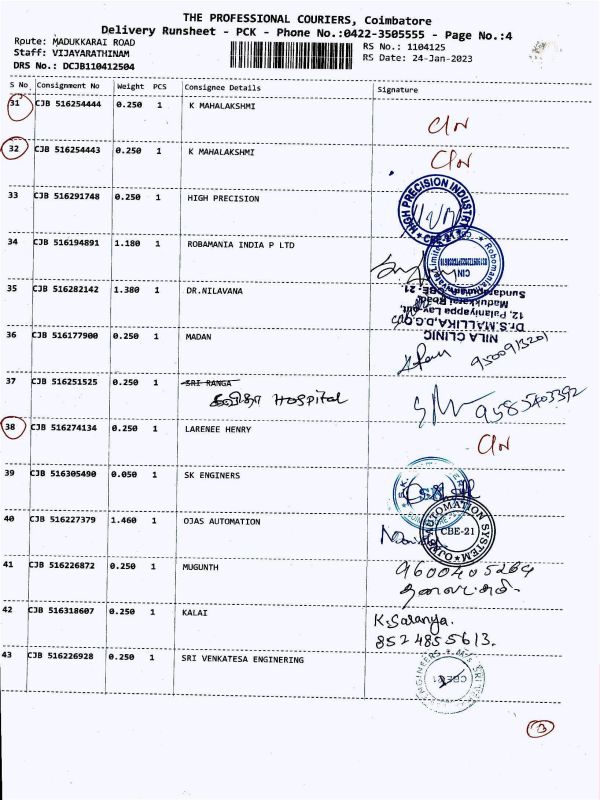 THE PROFESSIONAL COURIERS, Coimbatore
Delivery Runsheet - PCK - Phone No.:0422-3505555 - Page No.:4
Rpute: MADUKKARAI ROAD
RS No.: 1104125
Staff: VIJAYARATHINAM
RS Date: 24-Jan-2023
DRS No.: DCJB110412504
S No Consignment No Weight PCS Consignee Details Signature
31 CJB 516254444 0.250 1 K MAHALAKSHMI
32 CJB 516254443 0.250 1 K MAHALAKSHMI
33 CJB 516291748 0.250 1 HIGH PRECISION
HIGH PRECISION INDUSTRY
34 CJB 516194891 1.180 1 ROBAMANIA INDIA P LTD
35 CJB 516282142 1.380 1 DR.NILAVANA
NILA CLINIC
Dr.S.MALLIKA,D.G.O.
12, Palaniyappa Lay-out,
Madukkarai Road,
CBE-21
36 CJB 516177900 0.250 1 MADAN
9500913201
37 CJB 516251525 0.250 1 SRI RANGA
Hospital
9585403392
38 CJB 516274134 0.250 1 LARENEE HENRY
39 CJB 516305490 0.050 1 SK ENGINERS
40 CJB 516227379 1.460 1 OJAS AUTOMATION
OJAS AUTOMATION SYSTEM
CBE-21
41 CJB 516226872 0.250 1 MUGUNTH
9600405264
42 CJB 516318607 0.250 1 KALAI
K.Saranya.
8524855613.
43 CJB 516226928 0.250 1 SRI VENKATESA ENGINERING
13